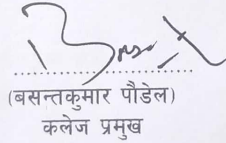 (बसन्तकुमार पौडेल)
कलेज प्रमुख